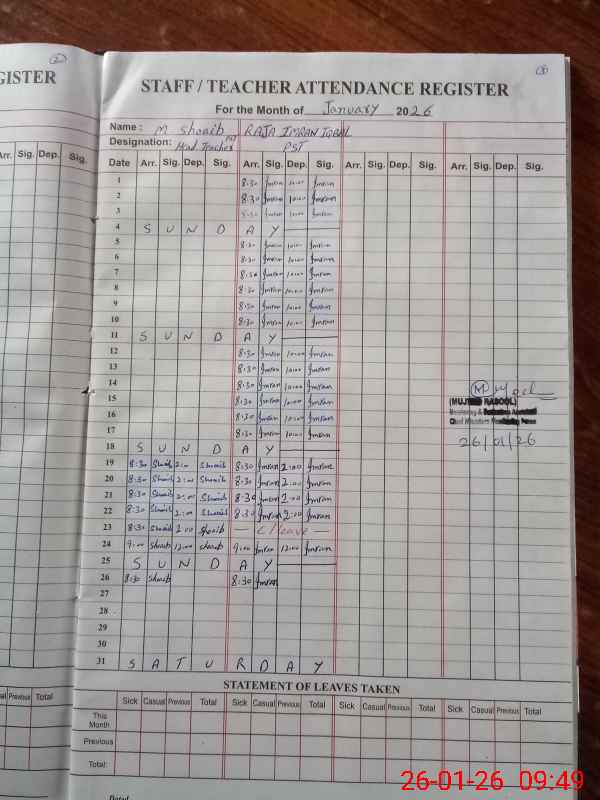 GISTER
2
3
STAFF / TEACHER ATTENDANCE REGISTER
For the Month of January 2026
Name : M Shoaib RAJA IMRAN IQBAL
Designation: Head Teacher PST
Arr. Sig. Dep. Sig.
Date Arr. Sig. Dep. Sig. Arr. Sig. Dep. Sig. Arr. Sig. Dep. Sig. Arr. Sig. Dep. Sig.
1 8:30 Imran 10:00 Imran
2 8:30 Imran 10:00 Imran
3 8:30 Imran 10:00 Imran
4 S U N D A Y
5 8:30 Imran 10:00 Imran
6 8:30 Imran 10:00 Imran
7 8:30 Imran 10:00 Imran
8 8:30 Imran 10:00 Imran
9 8:30 Imran 10:00 Imran
10 8:30 Imran 10:00 Imran
11 S U N D A Y
12 8:30 Imran 10:00 Imran
13 8:30 Imran 10:00 Imran
14 8:30 Imran 10:00 Imran
15 8:30 Imran 10:00 Imran
16 8:30 Imran 10:00 Imran
17 8:30 Imran 10:00 Imran
(MUJEEB RASOOL)
Monitoring & Evaluation Assistant
26/01/26
18 S U N D A Y
19 8:30 Shoaib 2:00 Shoaib 8:30 Imran 2:00 Imran
20 8:30 Shoaib 2:00 Shoaib 8:30 Imran 2:00 Imran
21 8:30 Shoaib 2:00 Shoaib 8:30 Imran 2:00 Imran
22 8:30 Shoaib 2:00 Shoaib 8:30 Imran 2:00 Imran
23 8:30 Shoaib 2:00 Shoaib — C/leave —
24 9:00 Shoaib 12:00 Shoaib 9:00 Imran 12:00 Imran
25 S U N D A Y
26 8:30 Shoaib 8:30 Imran
27
28
29
30
31 S A T U R D A Y
STATEMENT OF LEAVES TAKEN
Previous Total
Sick Casual Previous Total Sick Casual Previous Total Sick Casual Previous Total Sick Casual Previous Total
This Month
Previous
Total:
26-01-26 09:49